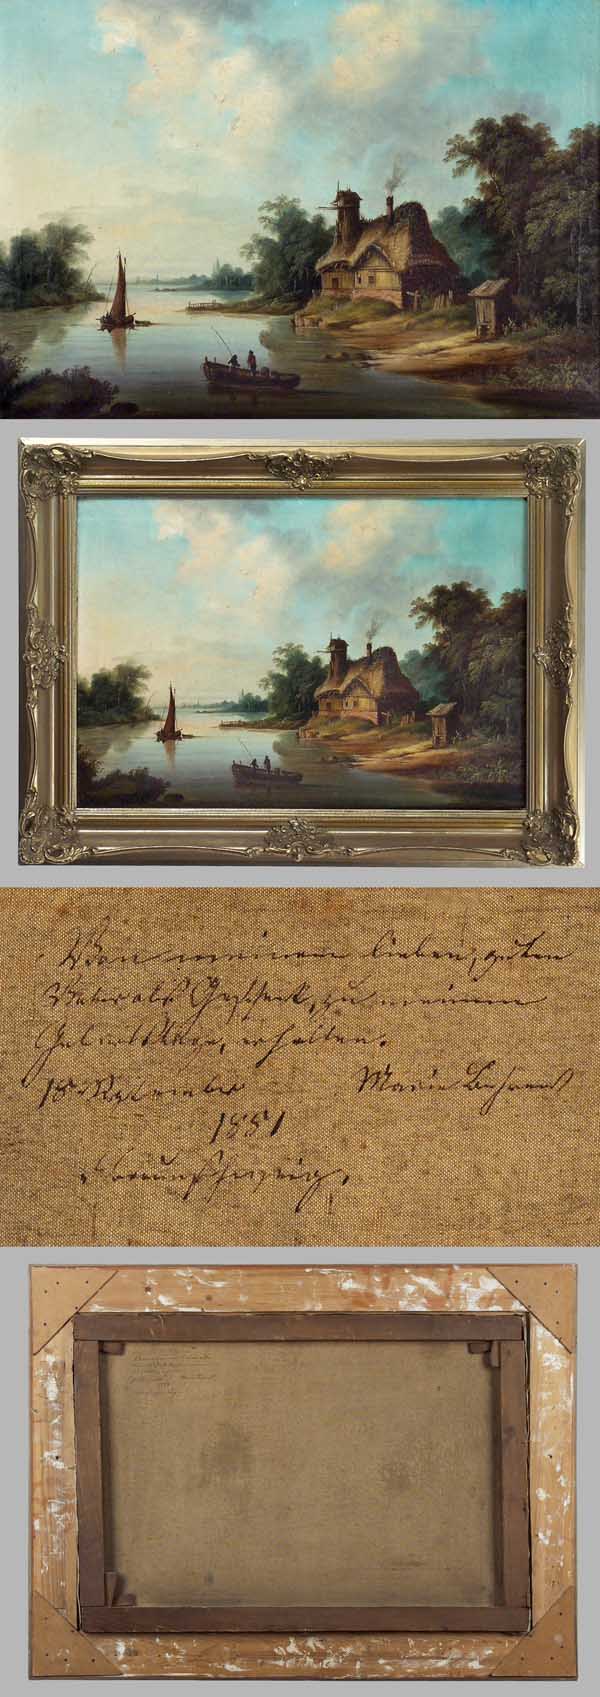 Von meinem lieben, guten
Vater als Geschenk, zu meinem
Geburtstage, erhalten.
18. September Marie Behrens
1881
Braunschweig,